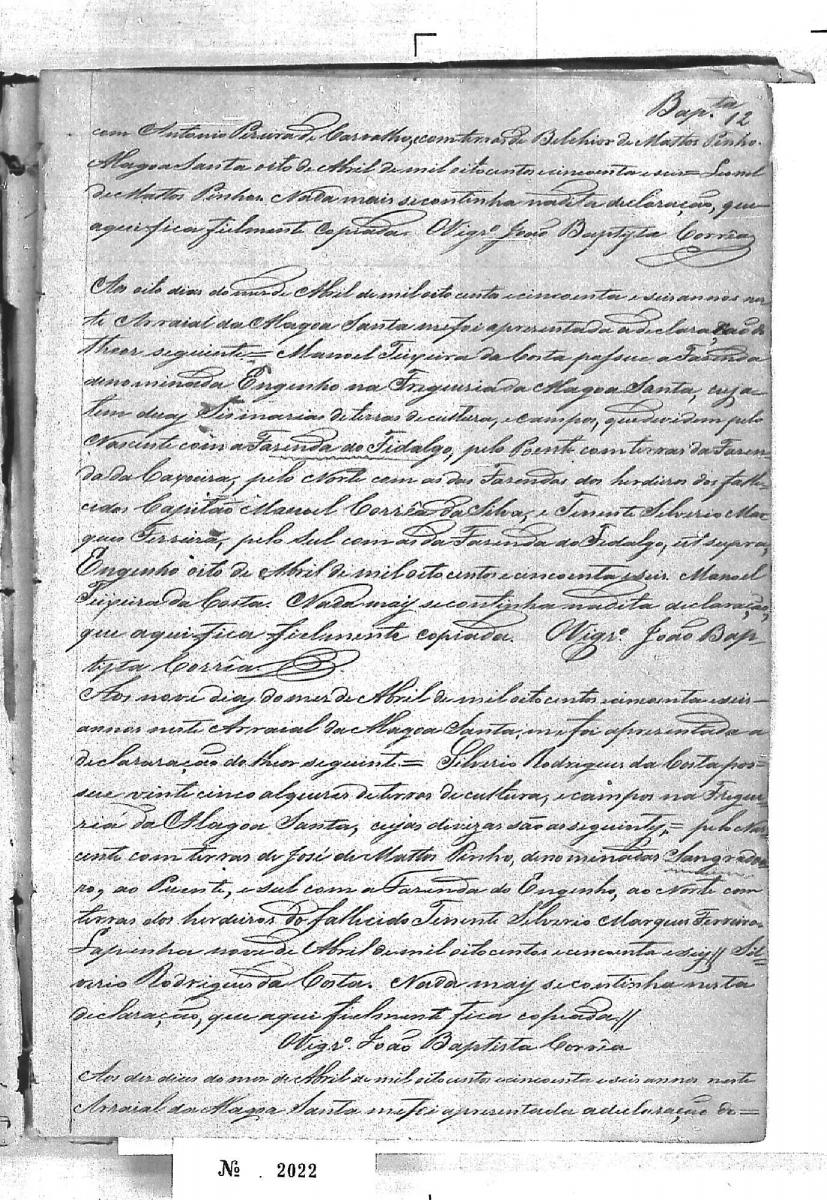 Bap.ta
12
com Antonio Pereira de Carvalho, e com terras de Belchior de Mattos Pinho.
Alagoa Santa oito de Abril de mil oito centos e cincoenta e seis = Leonel
de Mattos Pinho. Nada mais se continha na dita declaração, que
aqui fica fielmente copiada. O Vigr.º João Baptista Corrêa
Aos oito dias do mez de Abril de mil oito centos e cincoenta e seis annos nes
te Arraial da Alagoa Santa me foi apresentada a declaração do
theor seguinte = Manoel Teixeira da Costa possue a Fazenda
denominada Engenho na Freguezia da Alagoa Santa, cuja
tem duas Sismarias de terras de cultura, e campos, que devidem pelo
Nascente com a Fazenda do Fidalgo, pelo Poente com terras da Fazen
da da Caxoeira, pelo Norte com as das Fazendas dos herdeiros dos falle
cidos Capitão Manoel Corrêa da Silva, e Tenente Silverio Mar
ques Ferreira, pelo Sul com as da Fazenda do Fidalgo, ut supra,
Engenho oito de Abril de mil oito centos e cincoenta e seis. Manoel
Teixeira da Costa. Nada mais se continha na dita declaração,
que aqui fica fielmente copiada. O Vigr.º João Bap
tista Corrêa.
Aos nove dias do mez de Abril de mil oito centos e cincoenta e seis
annos neste Arraial da Alagoa Santa, me foi apresentada a
declararação do theor seguinte = Silverio Rodrigues da Costa pos=
sue vinte cinco alqueires de terras de cultura, e campos na Fregue
zia da Alagoa Santa, cujas divizas são as seguintes = pelo Nas
cente com terras de José de Mattos Pinho, denominadas Sangradou
ro, ao Puente, e sul com a Fazenda do Engenho, ao Norte com
terras dos herdeiros do fallecido Tenente Silverio Marques Ferreira.
Lapinha nove de Abril de mil oito centos e cincoenta e seis // Sil=
verio Rodrigues da Costa. Nada mais se continha nesta
declaração, que aqui fielmente fica copiada //
O Vigr.º João Baptista Corrêa
Aos dez dias do mez de Abril de mil oito centos e cincoenta e seis annos neste
Arraial da Alagoa Santa me foi apresentada a declaração do =
Nº . 2022